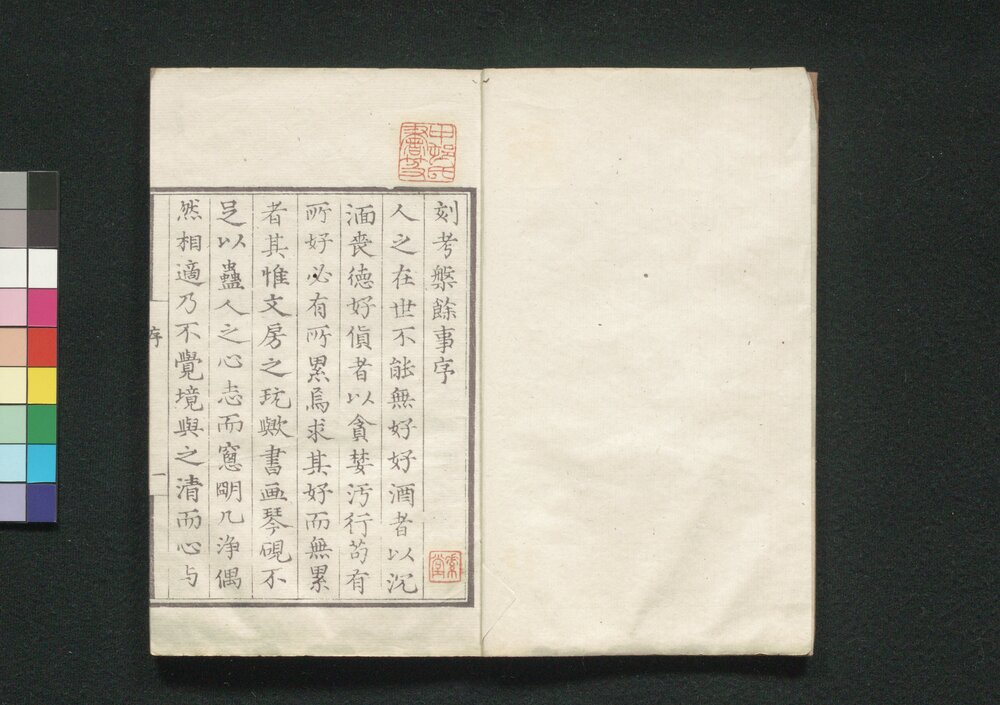 刻考槃餘事序
人之在世不能無好好酒者以沉
湎喪德好貨者以貪婪汚行苟有
所好必有所累焉求其好而無累
者其惟文房之玩歟書画琴硯不
足以蠱人之心志而窓明几净偶
然相適乃不覺境與之清而心与
序
一